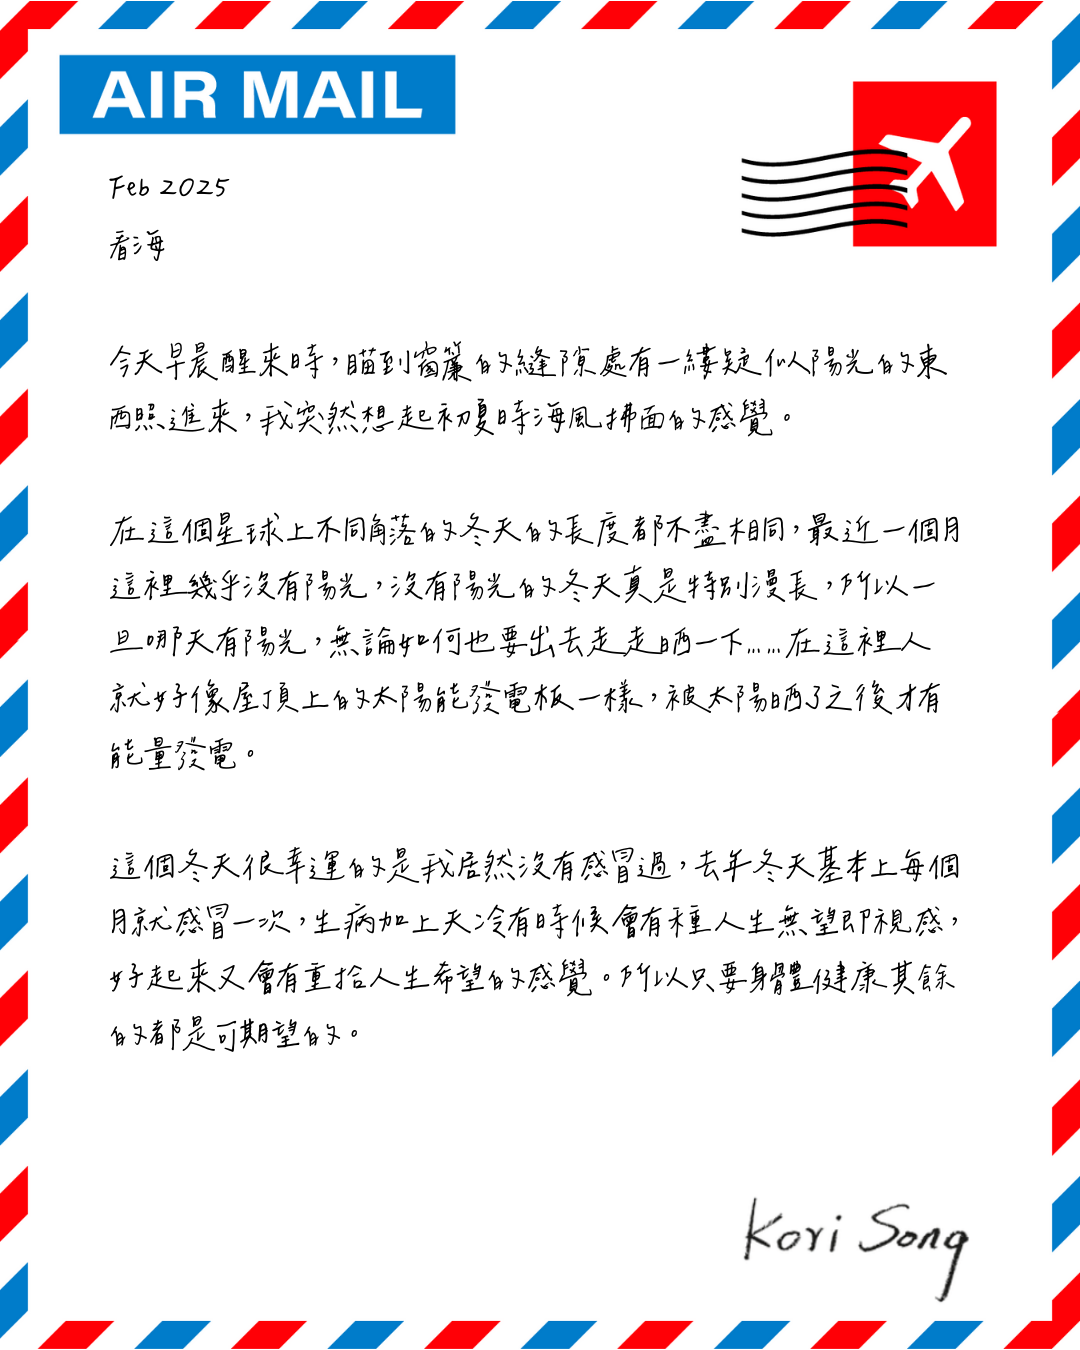 AIR MAIL
Feb 2025
看海
今天早晨醒來時，瞄到窗簾的縫隙處有一縷疑似陽光的東
西照進來，我突然想起初夏時海風拂面的感覺。
在這個星球上不同角落的冬天的長度都不盡相同，最近一個月
這裡幾乎沒有陽光，沒有陽光的冬天真是特別漫長，所以一
旦哪天有陽光，無論如何也要出去走走晒一下……在這裡人
就好像屋頂上的太陽能發電板一樣，被太陽晒了之後才有
能量發電。
這個冬天很幸運的是我居然沒有感冒過，去年冬天基本上每個
月就感冒一次，生病加上天冷有時候會有種人生無望即視感，
好起來又會有重拾人生希望的感覺。所以只要身體健康其餘
的都是可期望的。
Kori Song